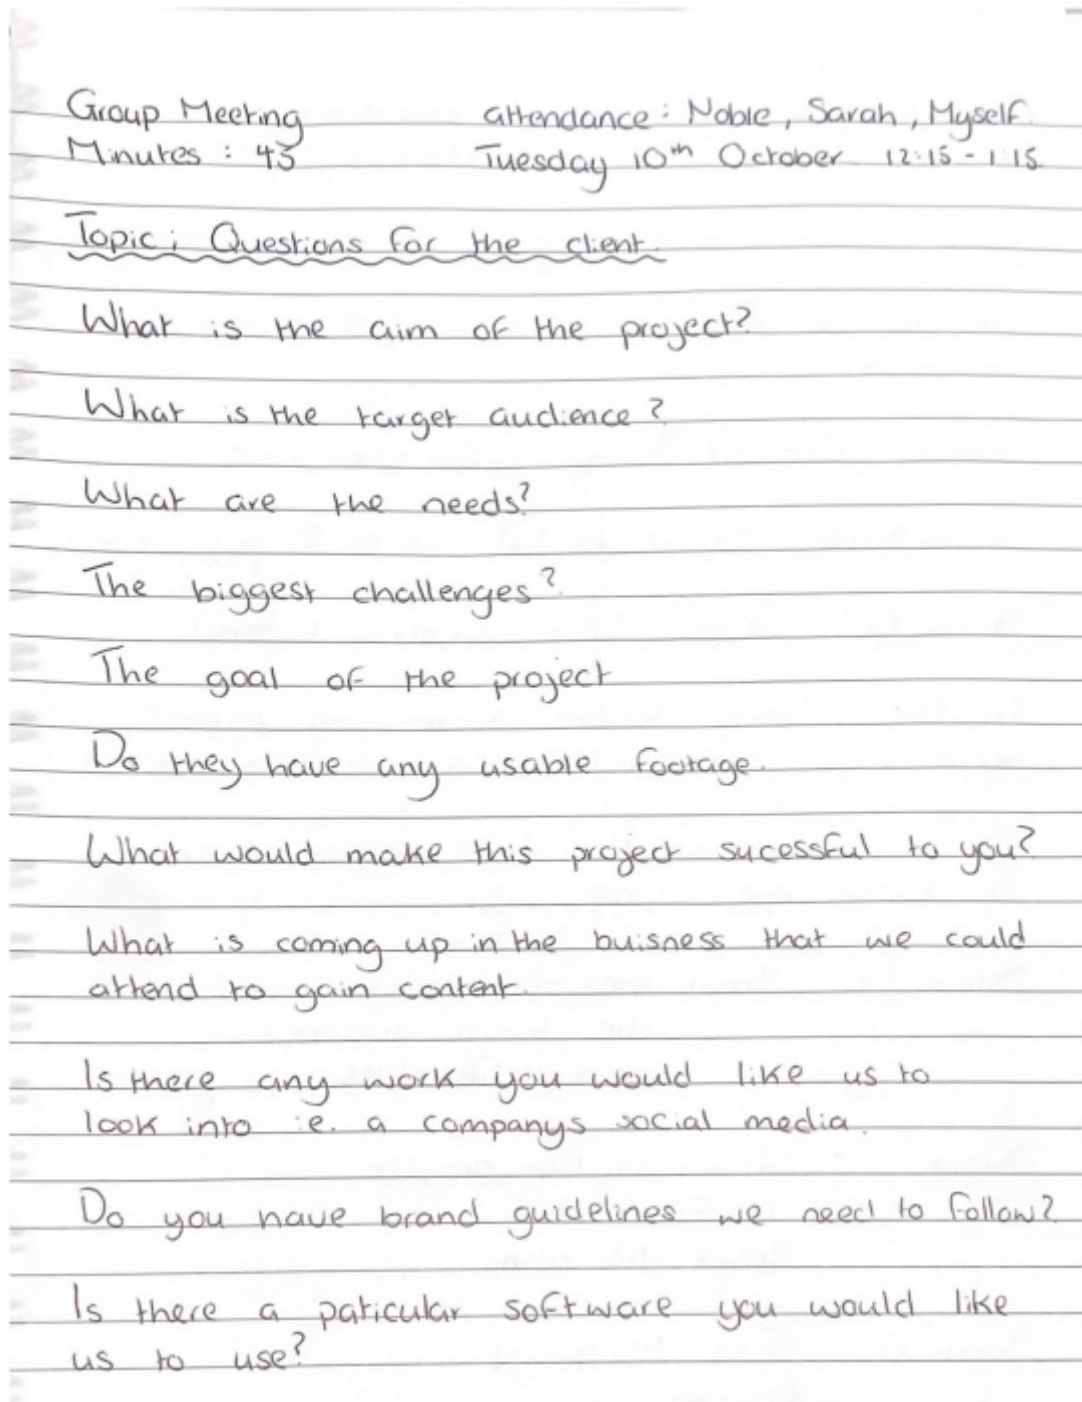 Group Meeting attendance: Noble, Sarah, Myself
Minutes: 45 Tuesday 10th October 12:15 - 1:15
Topic: Questions for the client.
What is the aim of the project?
What is the target audience?
What are the needs?
The biggest challenges?
The goal of the project
Do they have any usable footage.
What would make this project sucessful to you?
What is coming up in the buisness that we could
attend to gain content.
Is there any work you would like us to
look into i.e. a companys social media.
Do you have brand guidelines we need to follow?
Is there a paticular software you would like
us to use?